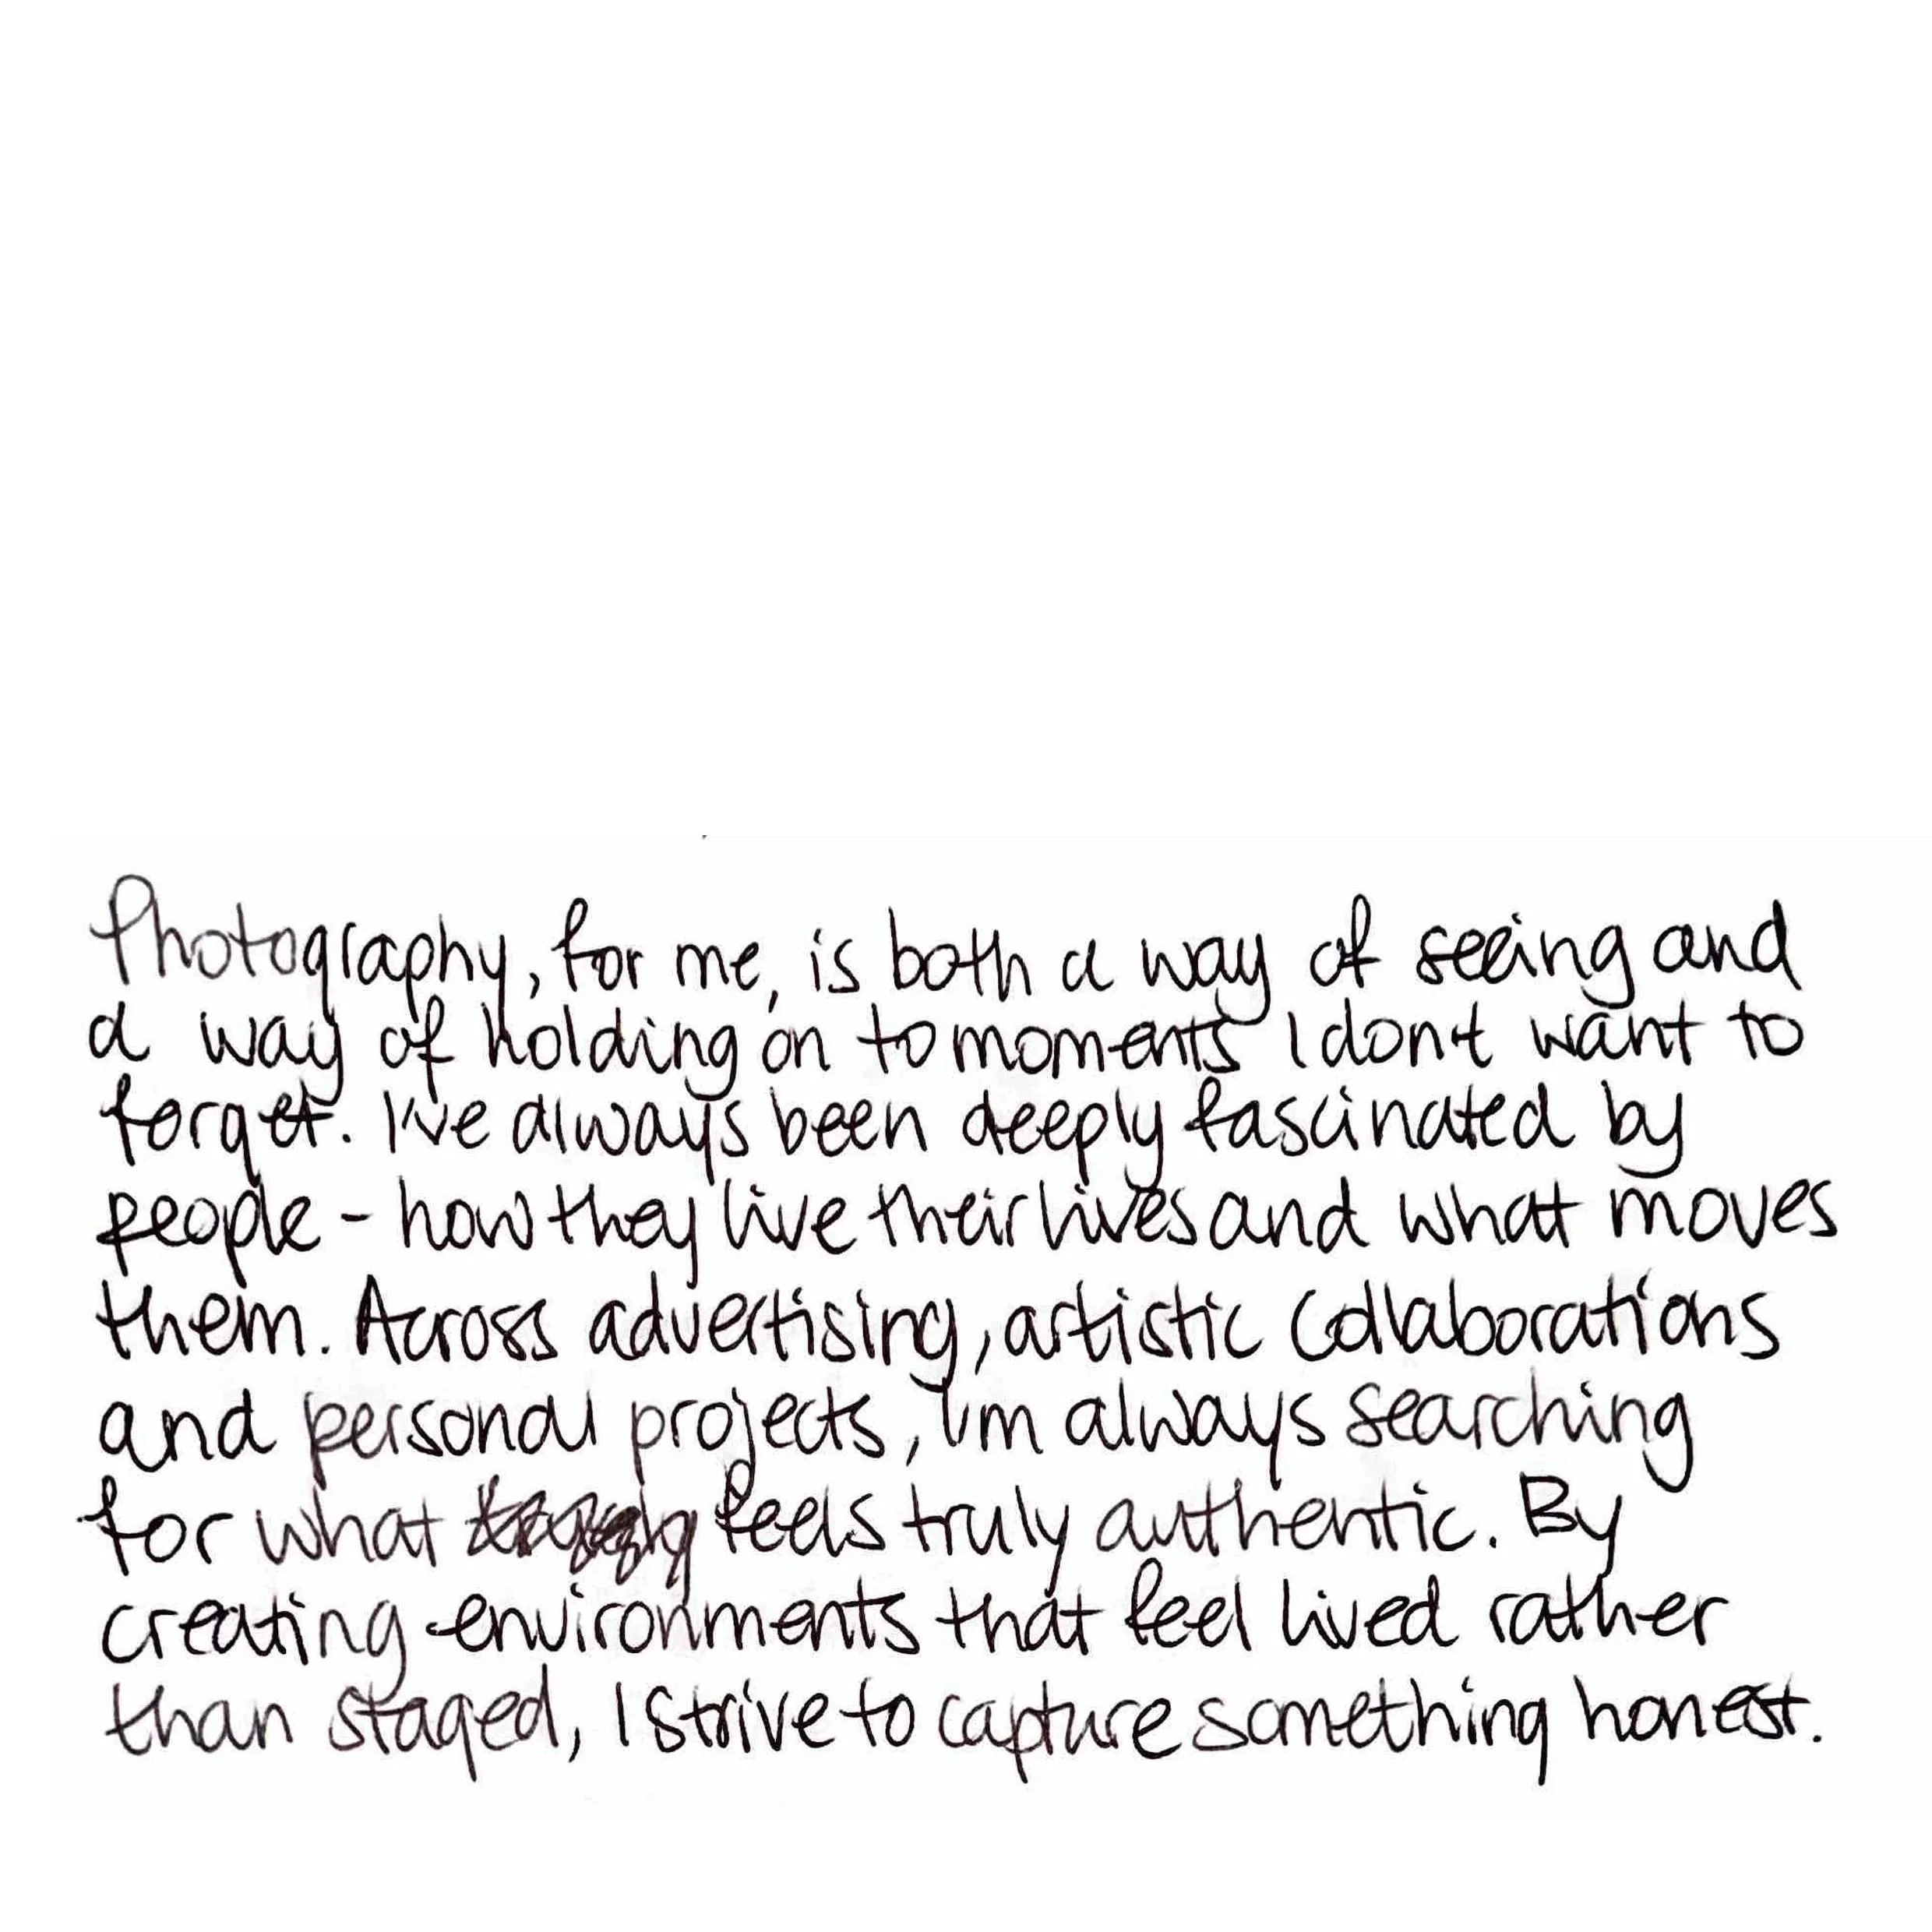 Photography, for me, is both a way of seeing and
a way of holding on to moments I dont want to
forget. I've always been deeply fascinated by
people - how they live their lives and what moves
them. Across advertising, artistic collaborations
and personal projects, I'm always searching
for what feels truly authentic. By
creating environments that feel lived rather
than staged, I strive to capture something honest.